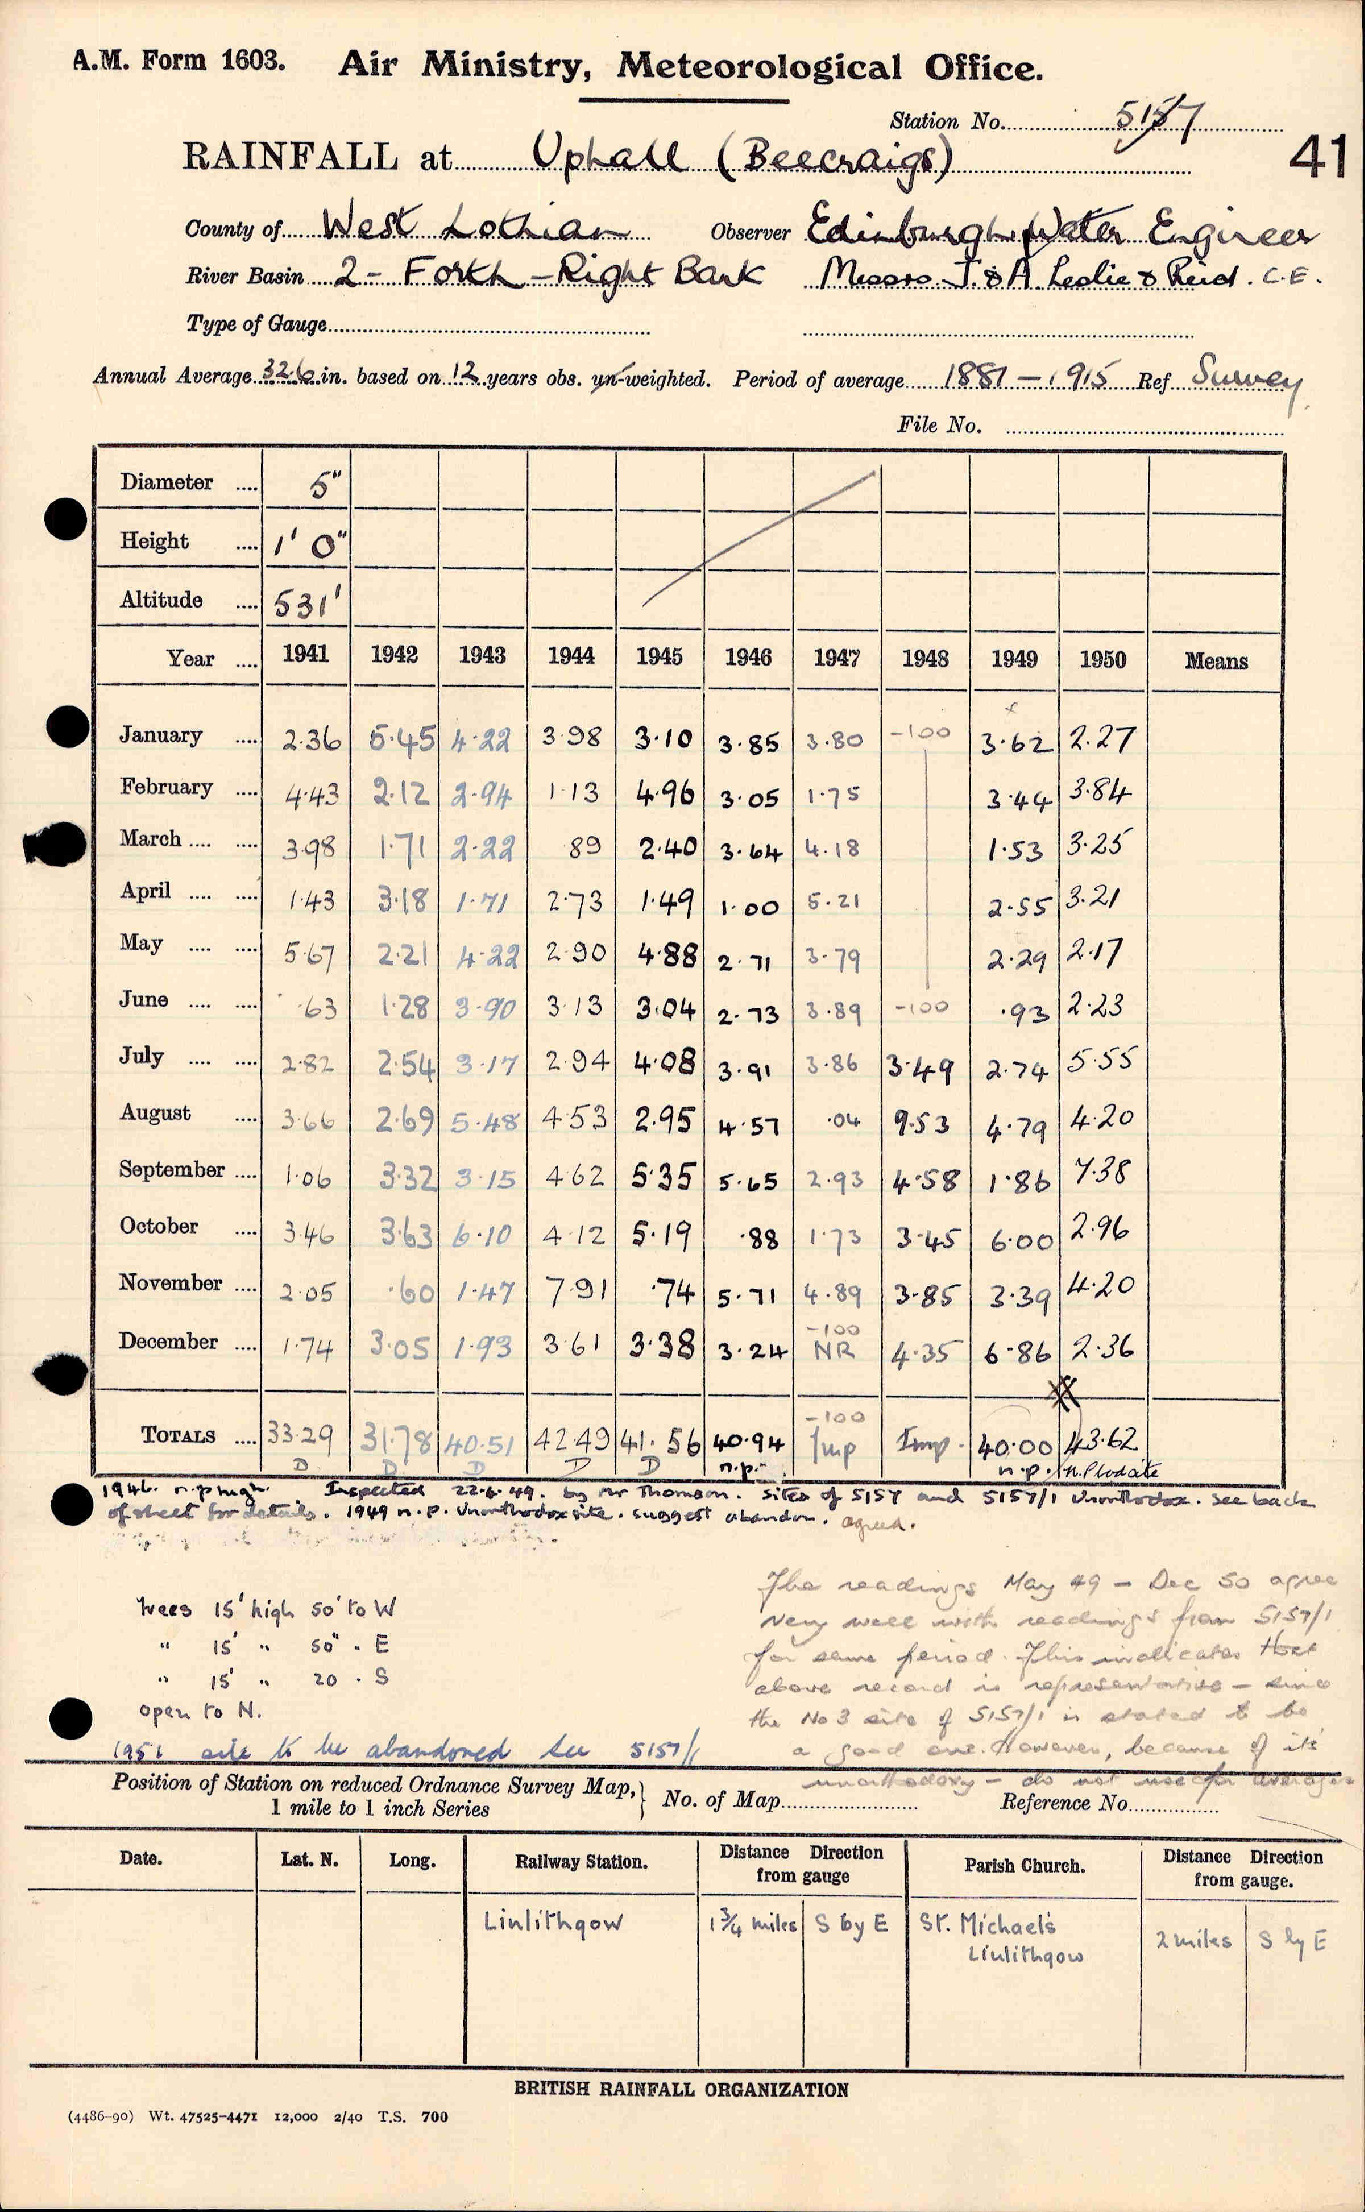 A.M. Form 1603. Air Ministry, Meteorological Office.
Station No. 5157
41
RAINFALL at Uphall (Beecraigs)
County of West Lothian Observer Edinburgh Water Engineer
River Basin 2 - Forth - Right Bank Messrs. J. & A Leslie & Reid. C.E.
Type of Gauge
Annual Average 32.6 in. based on 12 years obs. un-weighted. Period of average 1881 - 1915 Ref Survey
File No.
Diameter 5"
Height 1' 0"
Altitude 531'
Year 1941 1942 1943 1944 1945 1946 1947 1948 1949 1950 Means
January 2.36 5.45 4.22 3.98 3.10 3.85 3.80 -100 3.62 2.27
February 4.43 2.12 2.94 1.13 4.96 3.05 1.75 3.44 3.84
March 3.98 1.71 2.22 .89 2.40 3.64 4.18 1.53 3.25
April 1.43 3.18 1.71 2.73 1.49 1.00 5.21 2.55 3.21
May 5.67 2.21 4.22 2.90 4.88 2.71 3.79 2.29 2.17
June .63 1.28 3.90 3.13 3.04 2.73 3.89 -100 .93 2.23
July 2.82 2.54 3.17 2.94 4.08 3.91 3.86 3.49 2.74 5.55
August 3.66 2.69 5.48 4.53 2.95 4.57 .04 9.53 4.79 4.20
September 1.06 3.32 3.15 4.62 5.35 5.65 2.93 4.58 1.86 7.38
October 3.46 3.63 6.10 4.12 5.19 .88 1.73 3.45 6.00 2.96
November 2.05 .60 1.47 7.91 .74 5.71 4.89 3.85 3.39 4.20
-100
December 1.74 3.05 1.93 3.61 3.38 3.24 NR 4.35 6.86 2.36
-100
TOTALS 33.29 31.78 40.51 42.49 41.56 40.94 Imp Imp. 40.00 43.62
D D D D D n.p. n.p. n.p. to date
1946. n.p. high. Inspected 22.6.49. by Mr Thomson. Sites of 5157 and 5157/1 Unorthodox. See back
of sheet for details. 1949 n.p. Unorthodox site. suggest abandon. agreed.
The readings May 49 - Dec 50 agree
very well with readings from 5157/1
for same period. This indicates that
above record is representative - since
the No 3 site of 5157/1 is stated to be
a good one. However, because of its
unorthodoxy - do not use for averages
trees 15' high 50' to W
" 15' " 50" . E
" 15' " 20 . S
open to N.
1951 site to be abandoned see 5157/1
Position of Station on reduced Ordnance Survey Map, 1 mile to 1 inch Series } No. of Map Reference No.
Date. Lat. N. Long. Railway Station. Distance Direction from gauge Parish Church. Distance Direction from gauge.
Linlithgow 1¾ miles S by E St. Michael's Linlithgow 2 miles S by E
BRITISH RAINFALL ORGANIZATION
(4486-90) Wt. 47525-4471 12,000 2/40 T.S. 700